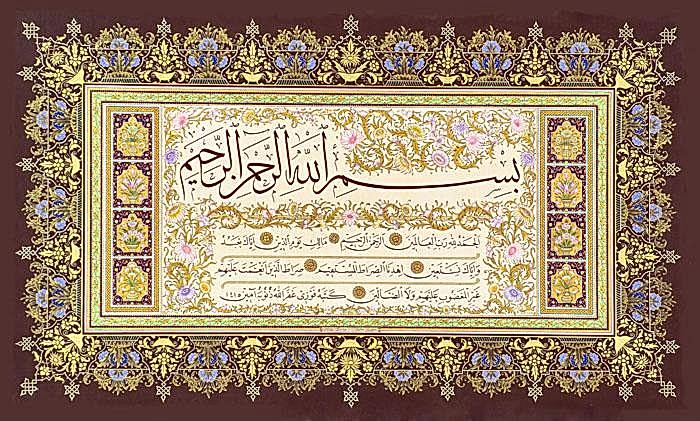 بسم الله الرحمن الرحيم
الحمد لله رب العالمين الرحمن الرحيم مالك يوم الدين إياك نعبد
وإياك نستعين اهدنا الصراط المستقيم صراط الذين أنعمت عليهم
غير المغضوب عليهم ولا الضالين كتبه فوزي غفر الله ذنوبه آمين ١٤١٥